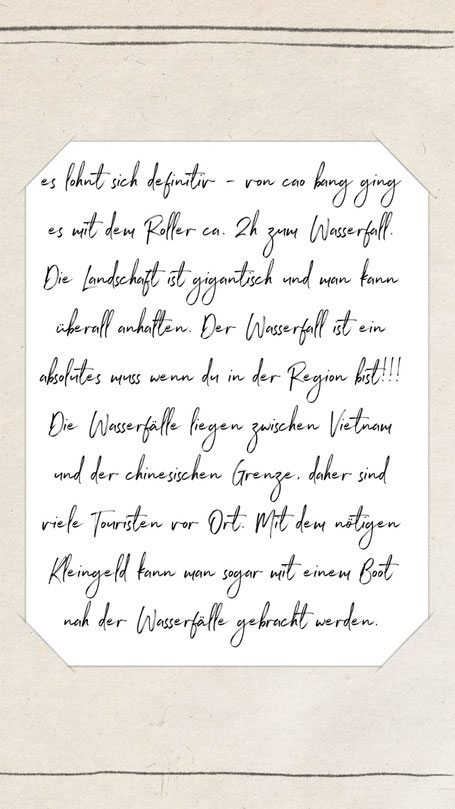 es lohnt sich definitiv - von cao bang ging
es mit dem Roller ca. 2h zum Wasserfall.
Die Landschaft ist gigantisch und man kann
überall anhalten. Der Wasserfall ist ein
absolutes muss wenn du in der Region bist!!!
Die Wasserfälle liegen zwischen Vietnam
und der chinesischen Grenze, daher sind
viele Touristen vor Ort. Mit dem nötigen
Kleingeld kann man sogar mit einem Boot
nah der Wasserfälle gebracht werden.